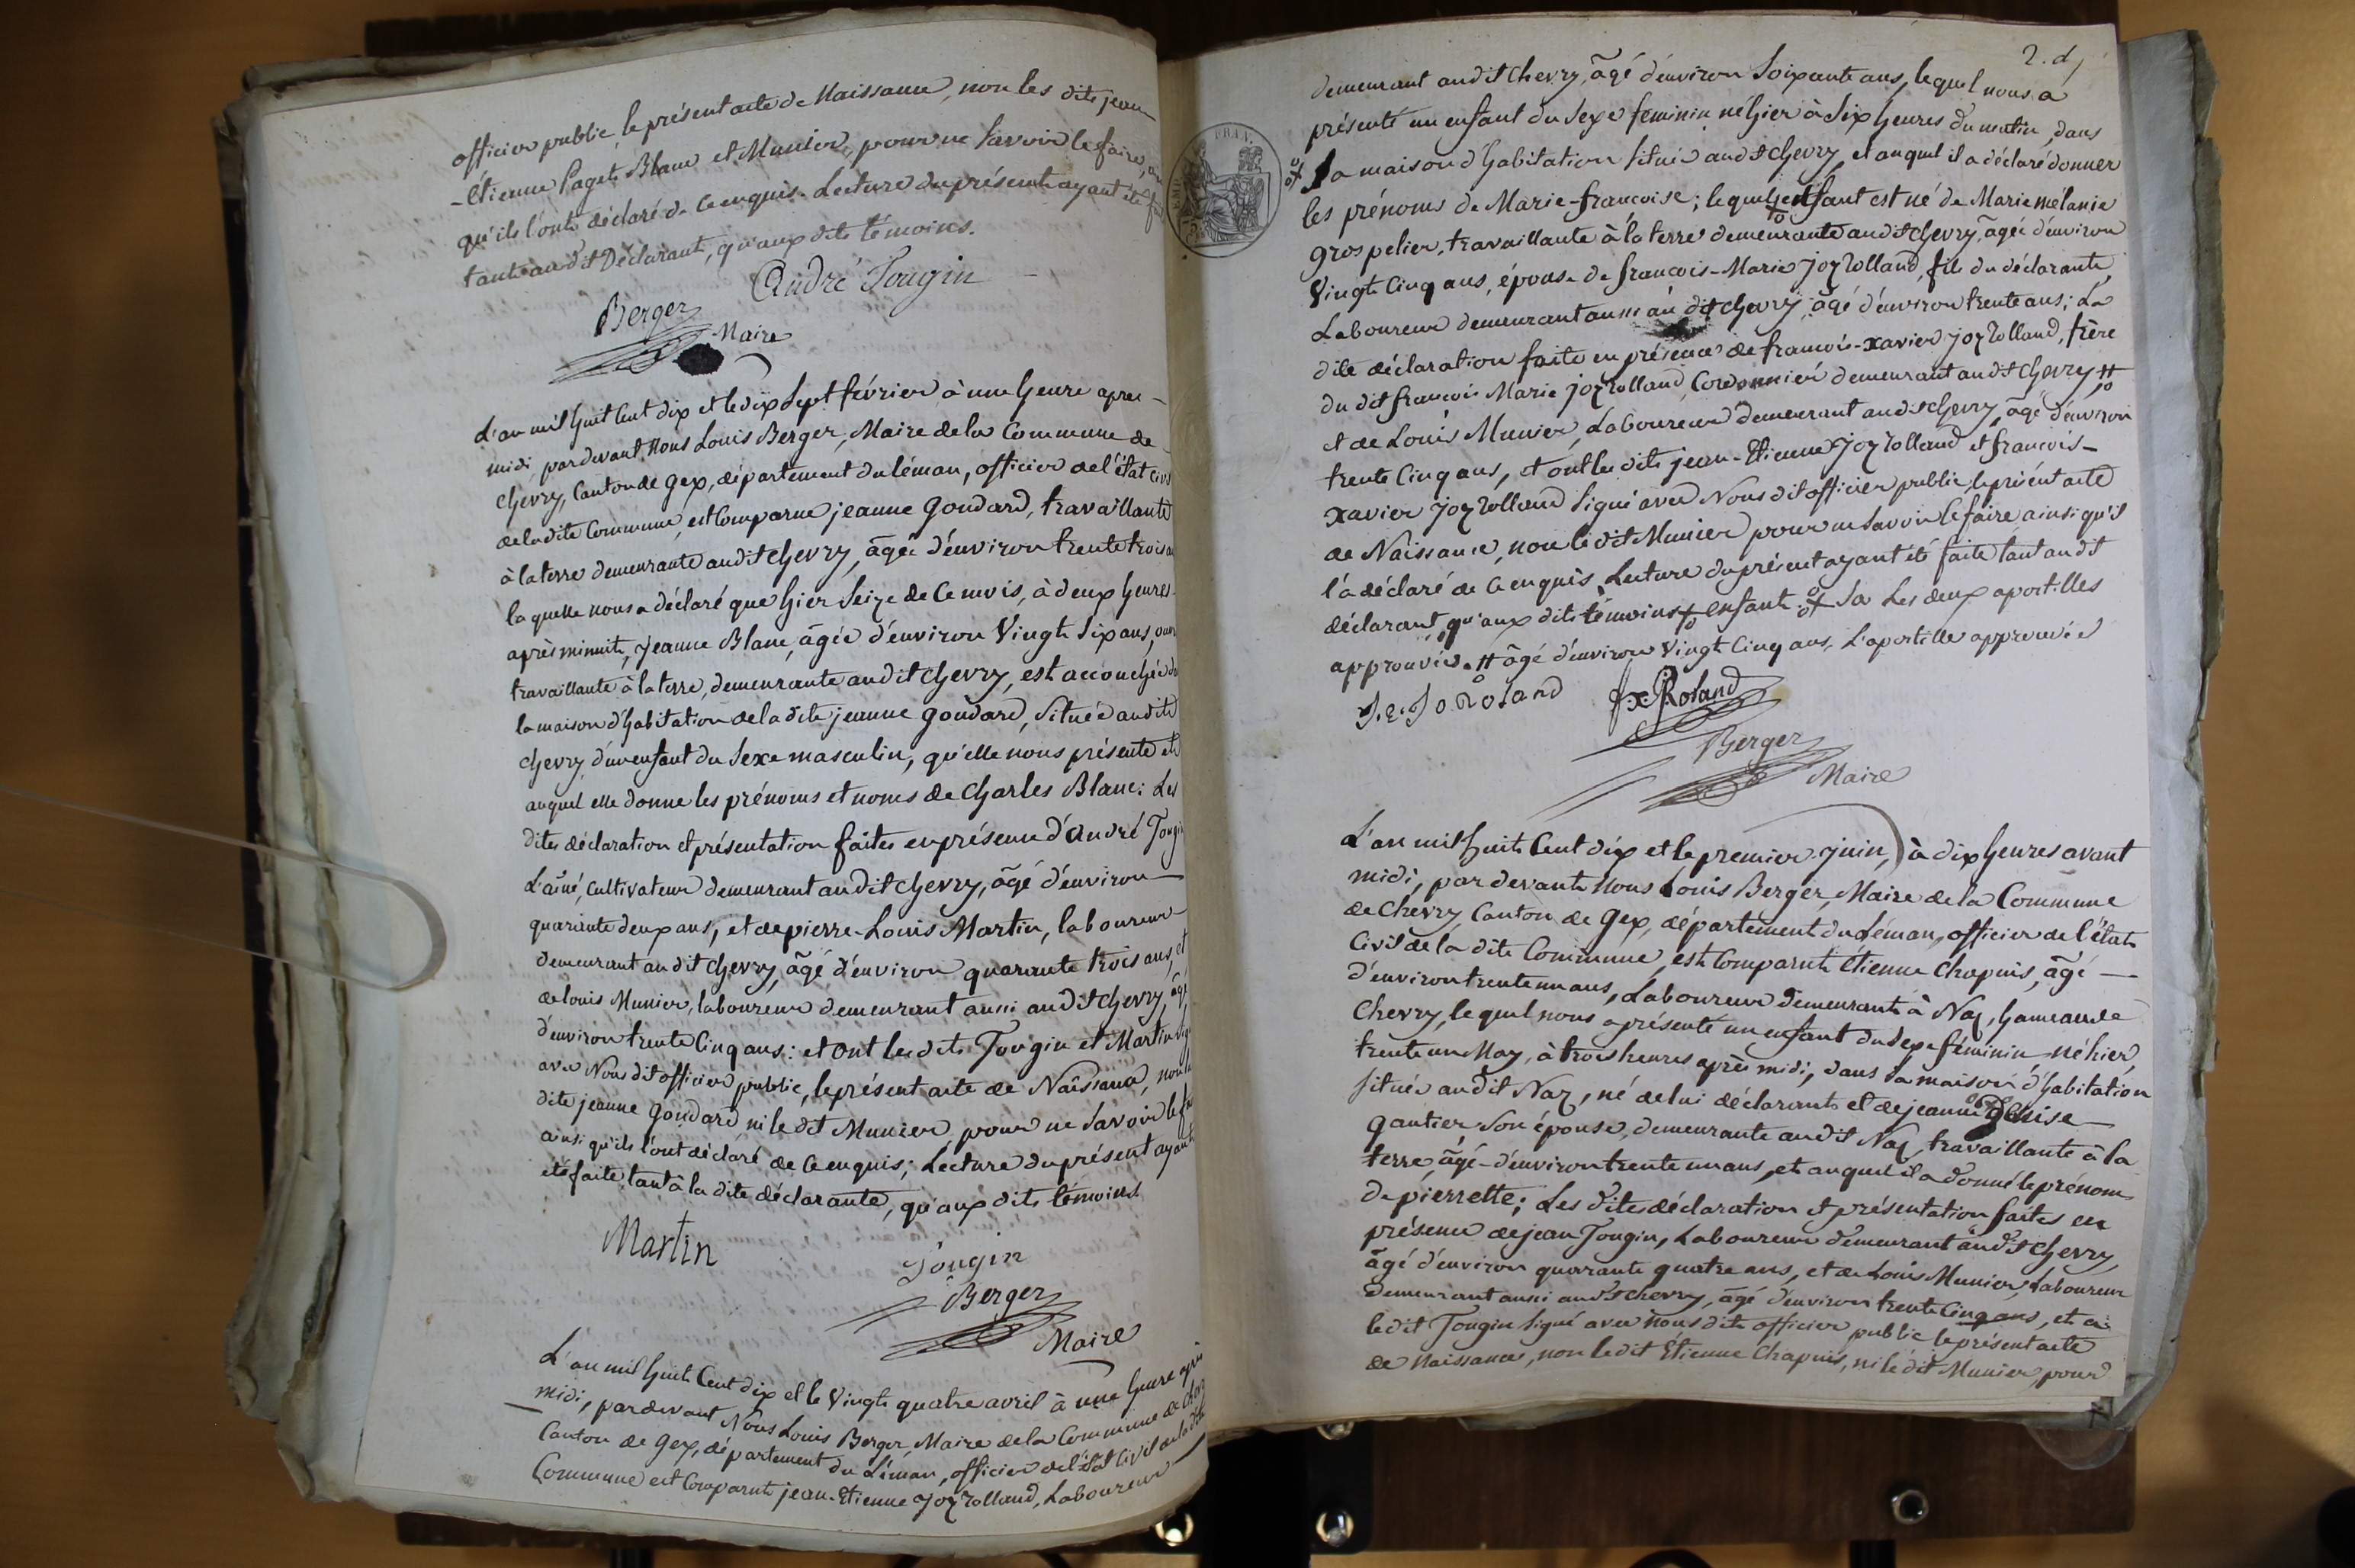 officier public, le présent acte de Naissance, non les dits jean
-Etienne Paget, Blanc et Munier, pour ne savoir le faire,
qu'ils l'ont déclaré de ce enquis. Lecture du présent ayant été
tant audit Déclarant, qu'aux dits témoins.
André Tougin
Berger
Maire
L'an mil huit Cent dix et le dix Sept février à une heure apres-
midi, pardevant Nous Louis Berger, Maire de la Commune de
Chevry, Canton de Gex, département du Léman, officier de l'état civil
de la dite Commune, est Comparue jeanne Goudard, travaillante
à la terre demeurante audit Chevry, âgée d'environ trente trois
laquelle nous a déclaré que hier Seize de Ce mois, à deux heures
après minuit, jeanne Blanc, âgée d'environ Vingt Six ans,
travaillante à la terre, demeurante audit Chevry, est accouchée
la maison d'habitation de la dite jeanne Goudard, Située audit
Chevry, d'un enfant du Sexe masculin, qu'elle nous présente et
auquel elle donne les prénoms et noms de Charles Blanc: Les
dites déclaration et présentation faites en présence d'André Tougin
L'aîné, Cultivateur demeurant audit Chevry, âgé d'environ
quarante deux ans, et de pierre-Louis Martin, laboureur
demeurant audit Chevry, âgé d'environ quarante trois ans, et
de louis Munier, laboureur demeurant aussi audit Chevry, âgé
d'environ trente Cinq ans: et ont les dits Tougin et Martin
avec Nous dit officier public, le présent acte de Naissance, non la
dite jeanne Goudard, ni le dit Munier, pour ne Savoir le
ainsi qu'ils l'ont déclaré de Ce enquis; Lecture du présent ayant
été faite, tant à la dite déclarante, qu'aux dits témoins.
Martin
Tougin
Berger
Maire
L'an mil huit Cent dix et le Vingt quatre avril à une heure après
midi, pardevant Nous Louis Berger, Maire de la Commune de
Canton de Gex, département du Léman, officier de l'état Civil de la dite
Commune est Comparut jean-Etienne Joz Rolland, Laboureur
2. d
demeurant audit Chevry, âgé d'environ Soixante ans, lequel nous a
présenté un enfant du Sexe feminin né hier à Six heures du matin, dans
FRAN.
Sa maison d'habitation Située audit Chevry, et auquel il a déclaré donner
les prénoms de Marie-françoise; lequel enfant est né de Marie mélanie
gros pelier, travaillante à la terre demeurante audit Chevry, âgée d'environ
Vingt Cinq ans, épouse de françois-Marie Joz Rolland, fils du déclarant,
Laboureur demeurant aussi au dit Chevry, âgé d'environ trente ans; La
dite déclaration faite en présence de françois-xavier Joz Rolland, frère
du dit françois Marie joz Rolland, Cordonnier demeurant audit Chevry, #
et de Louis Munier, Laboureur demeurant audit Chevry, âgé d'environ
trente Cinq ans, et ont les dits jean-Etienne Joz Rolland et françois-
xavier Joz Rolland Signé avec Nous dit officier public, le présent acte
de Naissance, non le dit Munier pour ne Savoir le faire, ainsi qu'il
l'a déclaré de Ce enquis. Lecture du présent ayant été faite tant audit
déclarant, qu'aux dits témoins + enfant + Sa Les deux apostilles
approuvées. # âgé d'environ Vingt Cinq ans, L'apostille approuvée
J. E. Jo Roland
fx Roland
Berger
Maire
L'an mil huit Cent dix et le premier Juin, à dix heures avant
midi, pardevant Nous Louis Berger, Maire de la Commune
de Chevry, Canton de Gex, département du Léman, officier de l'état
Civil de la dite Commune, est Comparut Etienne Chapuis, âgé
d'environ trente un ans, Laboureur demeurant à Naz, hameau de
Chevry, lequel nous a présenté un enfant du Sexe féminin, né hier,
trente un May, à trois heures après midi, dans Sa maison d'habitation
Située audit Naz, né de lui déclarant et de jeanne Denise
gautier Son épouse, demeurante audit Naz, travaillante à la
terre, âgé d'environ trente un ans, et auquel il a donné le prénom
de pierrette; Les dites déclaration et présentation faites en
présence de jean Tougin, Laboureur demeurant audit Chevry,
âgé d'environ quarante quatre ans, et de Louis Munier, Laboureur
demeurant aussi audit Chevry, âgé d'environ trente Cinq ans, et a
ledit Tougin Signé avec Nous dit officier public le présent acte
de Naissance, non le dit Etienne Chapuis, ni le dit Munier, pour